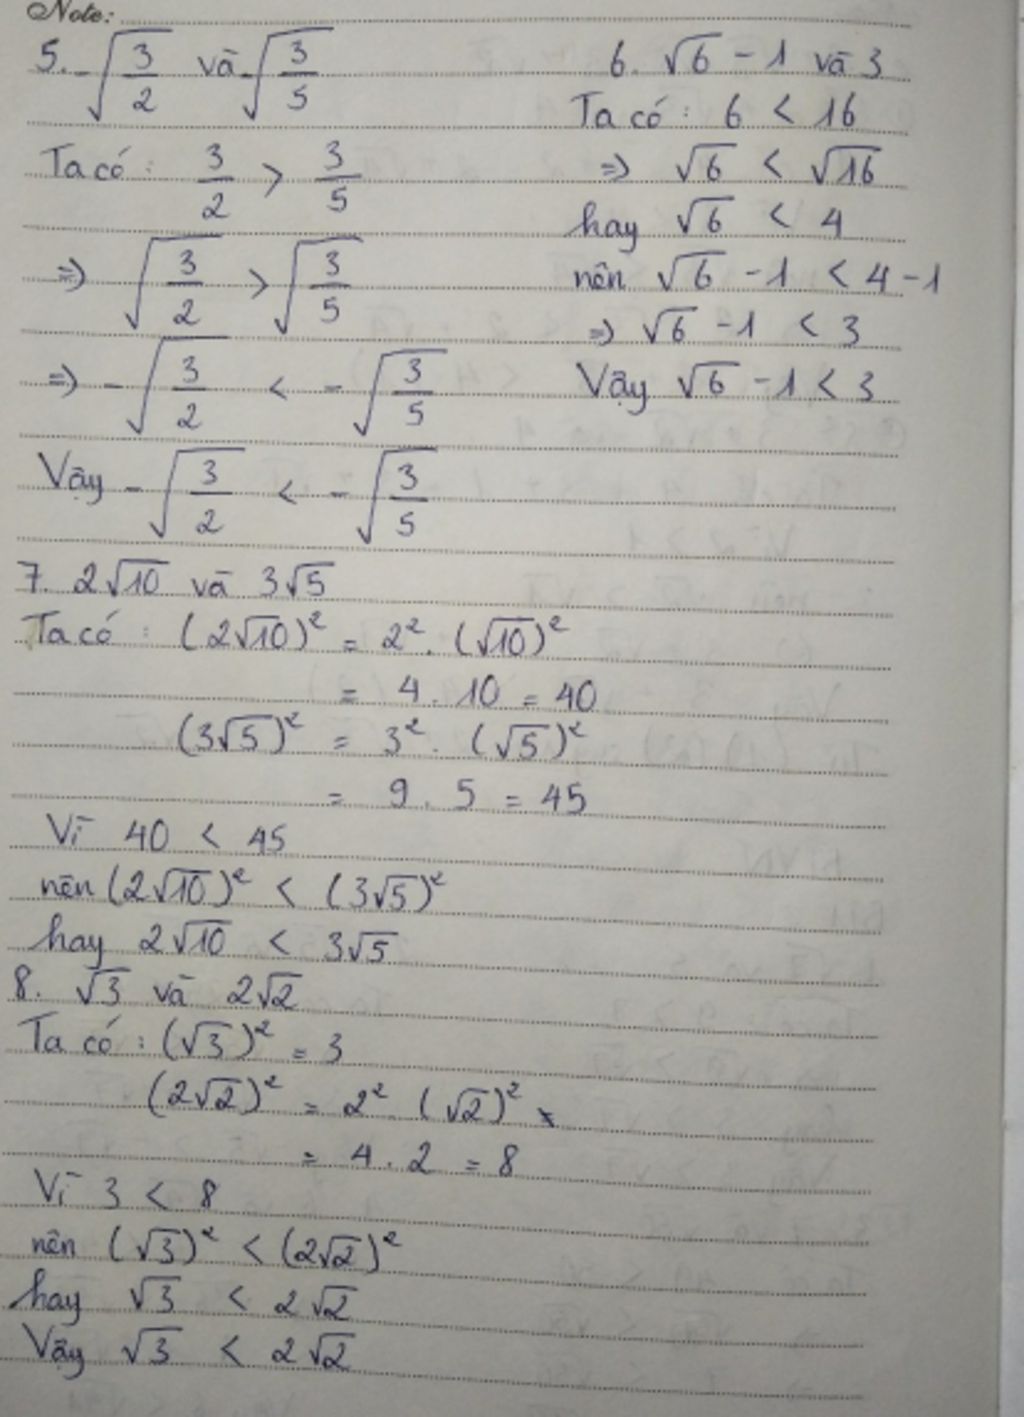 Note:
5. -√(3/2) và -√(3/5)
Ta có: 3/2 > 3/5
=> √(3/2) > √(3/5)
=> -√(3/2) < -√(3/5)
Vậy -√(3/2) < -√(3/5)
6. √6 - 1 và 3
Ta có: 6 < 16
=> √6 < √16
hay √6 < 4
nên √6 - 1 < 4 - 1
=> √6 - 1 < 3
Vậy √6 - 1 < 3
7. 2√10 và 3√5
Ta có: (2√10)² = 2² . (√10)²
= 4 . 10 = 40
(3√5)² = 3² . (√5)²
= 9 . 5 = 45
Vì 40 < 45
nên (2√10)² < (3√5)²
hay 2√10 < 3√5
8. √3 và 2√2
Ta có: (√3)² = 3
(2√2)² = 2² . (√2)²
= 4 . 2 = 8
Vì 3 < 8
nên (√3)² < (2√2)²
hay √3 < 2√2
Vậy √3 < 2√2